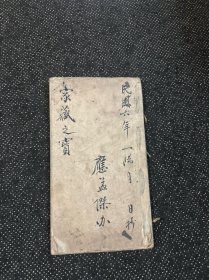 民國六年 一陽月 日 立
應孟傑办
家藏之寶